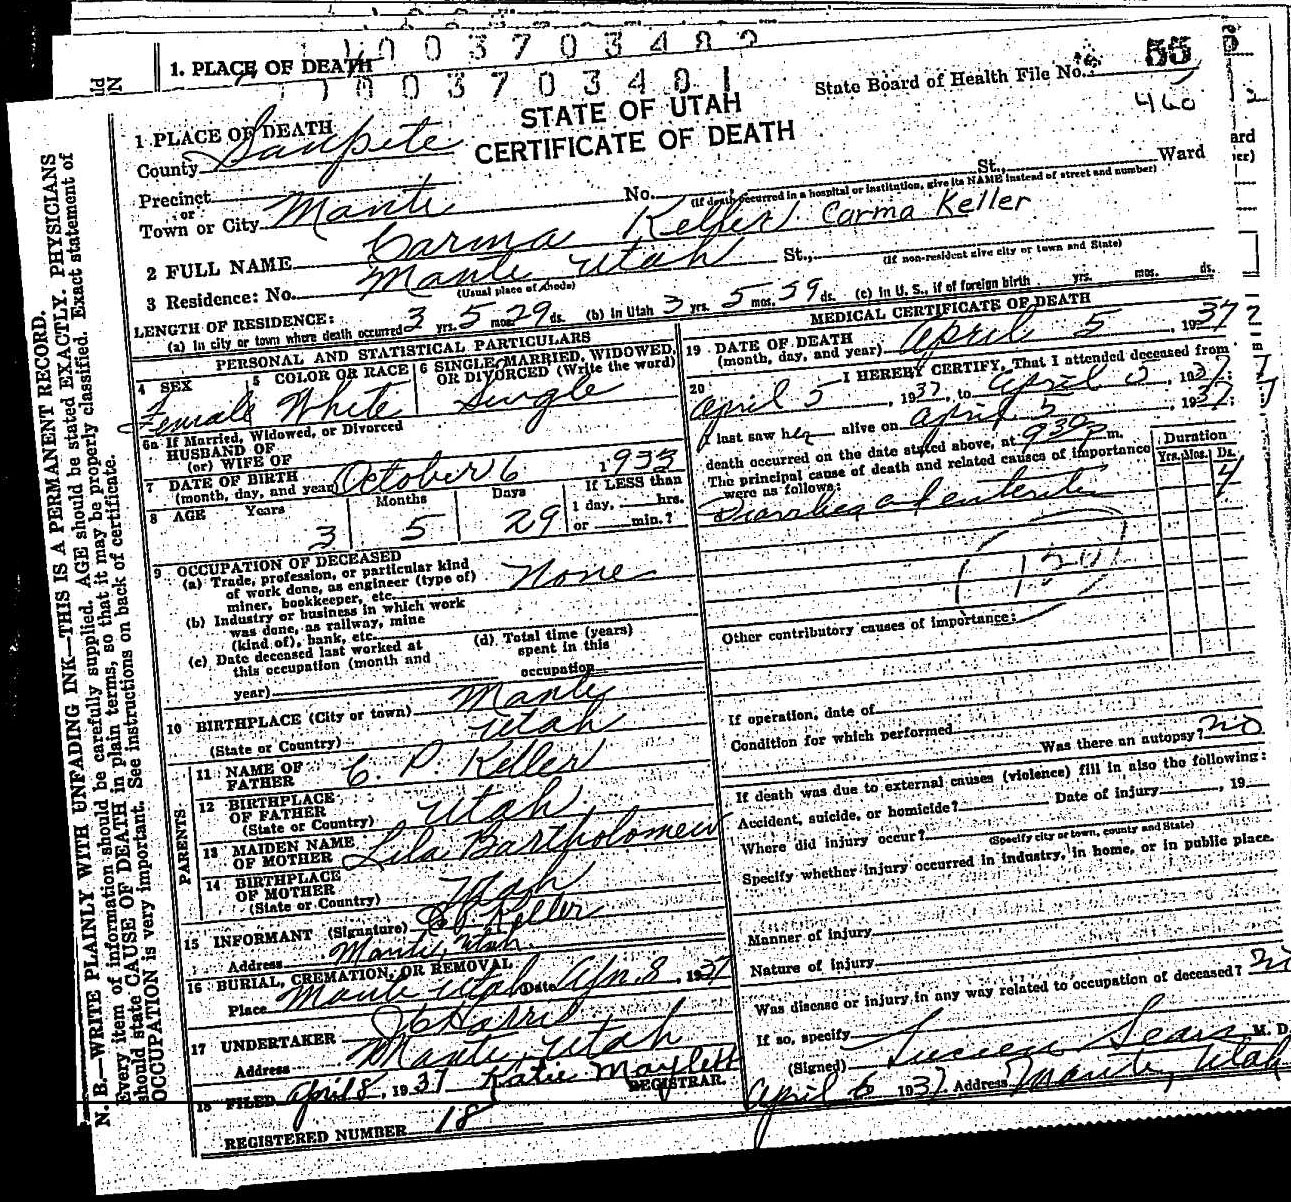 1. PLACE OF DEATH
003703482
003703481
State Board of Health File No. 55
460
STATE OF UTAH
CERTIFICATE OF DEATH
1 PLACE OF DEATH
County Sanpete
Precinct
or
Town or City Manti No. St., Ward
(If death occurred in a hospital or institution, give its NAME instead of street and number)
2 FULL NAME Carma Keller Carma Keller
3 Residence: No. Manti Utah St.,
(Usual place of abode) (If non-resident give city or town and State)
LENGTH OF RESIDENCE:
(a) In city or town where death occurred 3 yrs. 5 mos. 29 ds. (b) in Utah 3 yrs. 5 mos. 29 ds. (c) in U. S., if of foreign birth yrs. mos. ds.
PERSONAL AND STATISTICAL PARTICULARS
4 SEX Female
5 COLOR OR RACE White
6 SINGLE, MARRIED, WIDOWED, OR DIVORCED (Write the word) Single
6a If Married, Widowed, or Divorced
HUSBAND OF
(or) WIFE OF
7 DATE OF BIRTH
(month, day, and year) October 6 1933
8 AGE Years 3 Months 5 Days 29 If LESS than
1 day, hrs.
or min.?
9 OCCUPATION OF DECEASED
(a) Trade, profession, or particular kind
of work done, as engineer (type of)
miner, bookkeeper, etc. None
(b) Industry or business in which work
was done, as railway, mine
(kind of), bank, etc.
(c) Date deceased last worked at
this occupation (month and
year)
(d) Total time (years)
spent in this
occupation
10 BIRTHPLACE (City or town) Manti
(State or Country) Utah
PARENTS
11 NAME OF
FATHER C. P. Keller
12 BIRTHPLACE
OF FATHER
(State or Country) Utah
13 MAIDEN NAME
OF MOTHER Lila Bartholomew
14 BIRTHPLACE
OF MOTHER
(State or Country) Utah
15 INFORMANT (Signature) Keller
Address Manti, Utah
16 BURIAL, CREMATION, OR REMOVAL
Place Manti Utah Date Apr. 8, 1937
17 UNDERTAKER Harris
Address Manti, Utah
18 FILED April 8, 1937 Katie Maylett
REGISTRAR.
REGISTERED NUMBER 18
MEDICAL CERTIFICATE OF DEATH
19 DATE OF DEATH
(month, day, and year) April 5, 1937
20 I HEREBY CERTIFY, That I attended deceased from
April 5, 1937, to April 5, 1937;
I last saw her alive on April 5, 1937;
death occurred on the date stated above, at 930 p m.
The principal cause of death and related causes of importance
were as follows:
Duration
Yrs. Mos. Ds.
Diarrhea and enteritis 4
Other contributory causes of importance:
If operation, date of
Condition for which performed
Was there an autopsy? no
If death was due to external causes (violence) fill in also the following:
Accident, suicide, or homicide? Date of injury , 19
Where did injury occur?
(Specify city or town, county and State)
Specify whether injury occurred in industry, in home, or in public place.
Manner of injury
Nature of injury
Was disease or injury in any way related to occupation of deceased? no
If so, specify
(Signed) Lucien Sears M. D.
April 6 1937. Address Manti, Utah
N. B.—WRITE PLAINLY WITH UNFADING INK—THIS IS A PERMANENT RECORD.
Every item of information should be carefully supplied. AGE should be stated EXACTLY. PHYSICIANS
should state CAUSE OF DEATH in plain terms, so that it may be properly classified. Exact statement of
OCCUPATION is very important. See instructions on back of certificate.